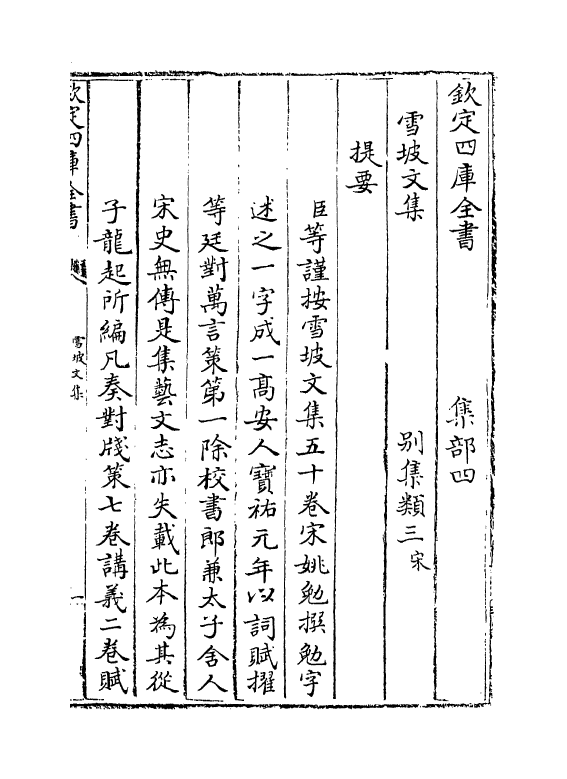 欽定四庫全書　集部四
雪坡文集　别集類三宋
提要
臣等謹按雪坡文集五十卷宋姚勉撰勉字
述之一字成一髙安人寳祐元年以詞賦擢
等廷對萬言策第一除校書郎兼太子舍人
宋史無傳是集藝文志亦失載此本為其從
子龍起所編凡奏對牋策七卷講義二卷賦
欽定四庫全書
雪坡文集
一